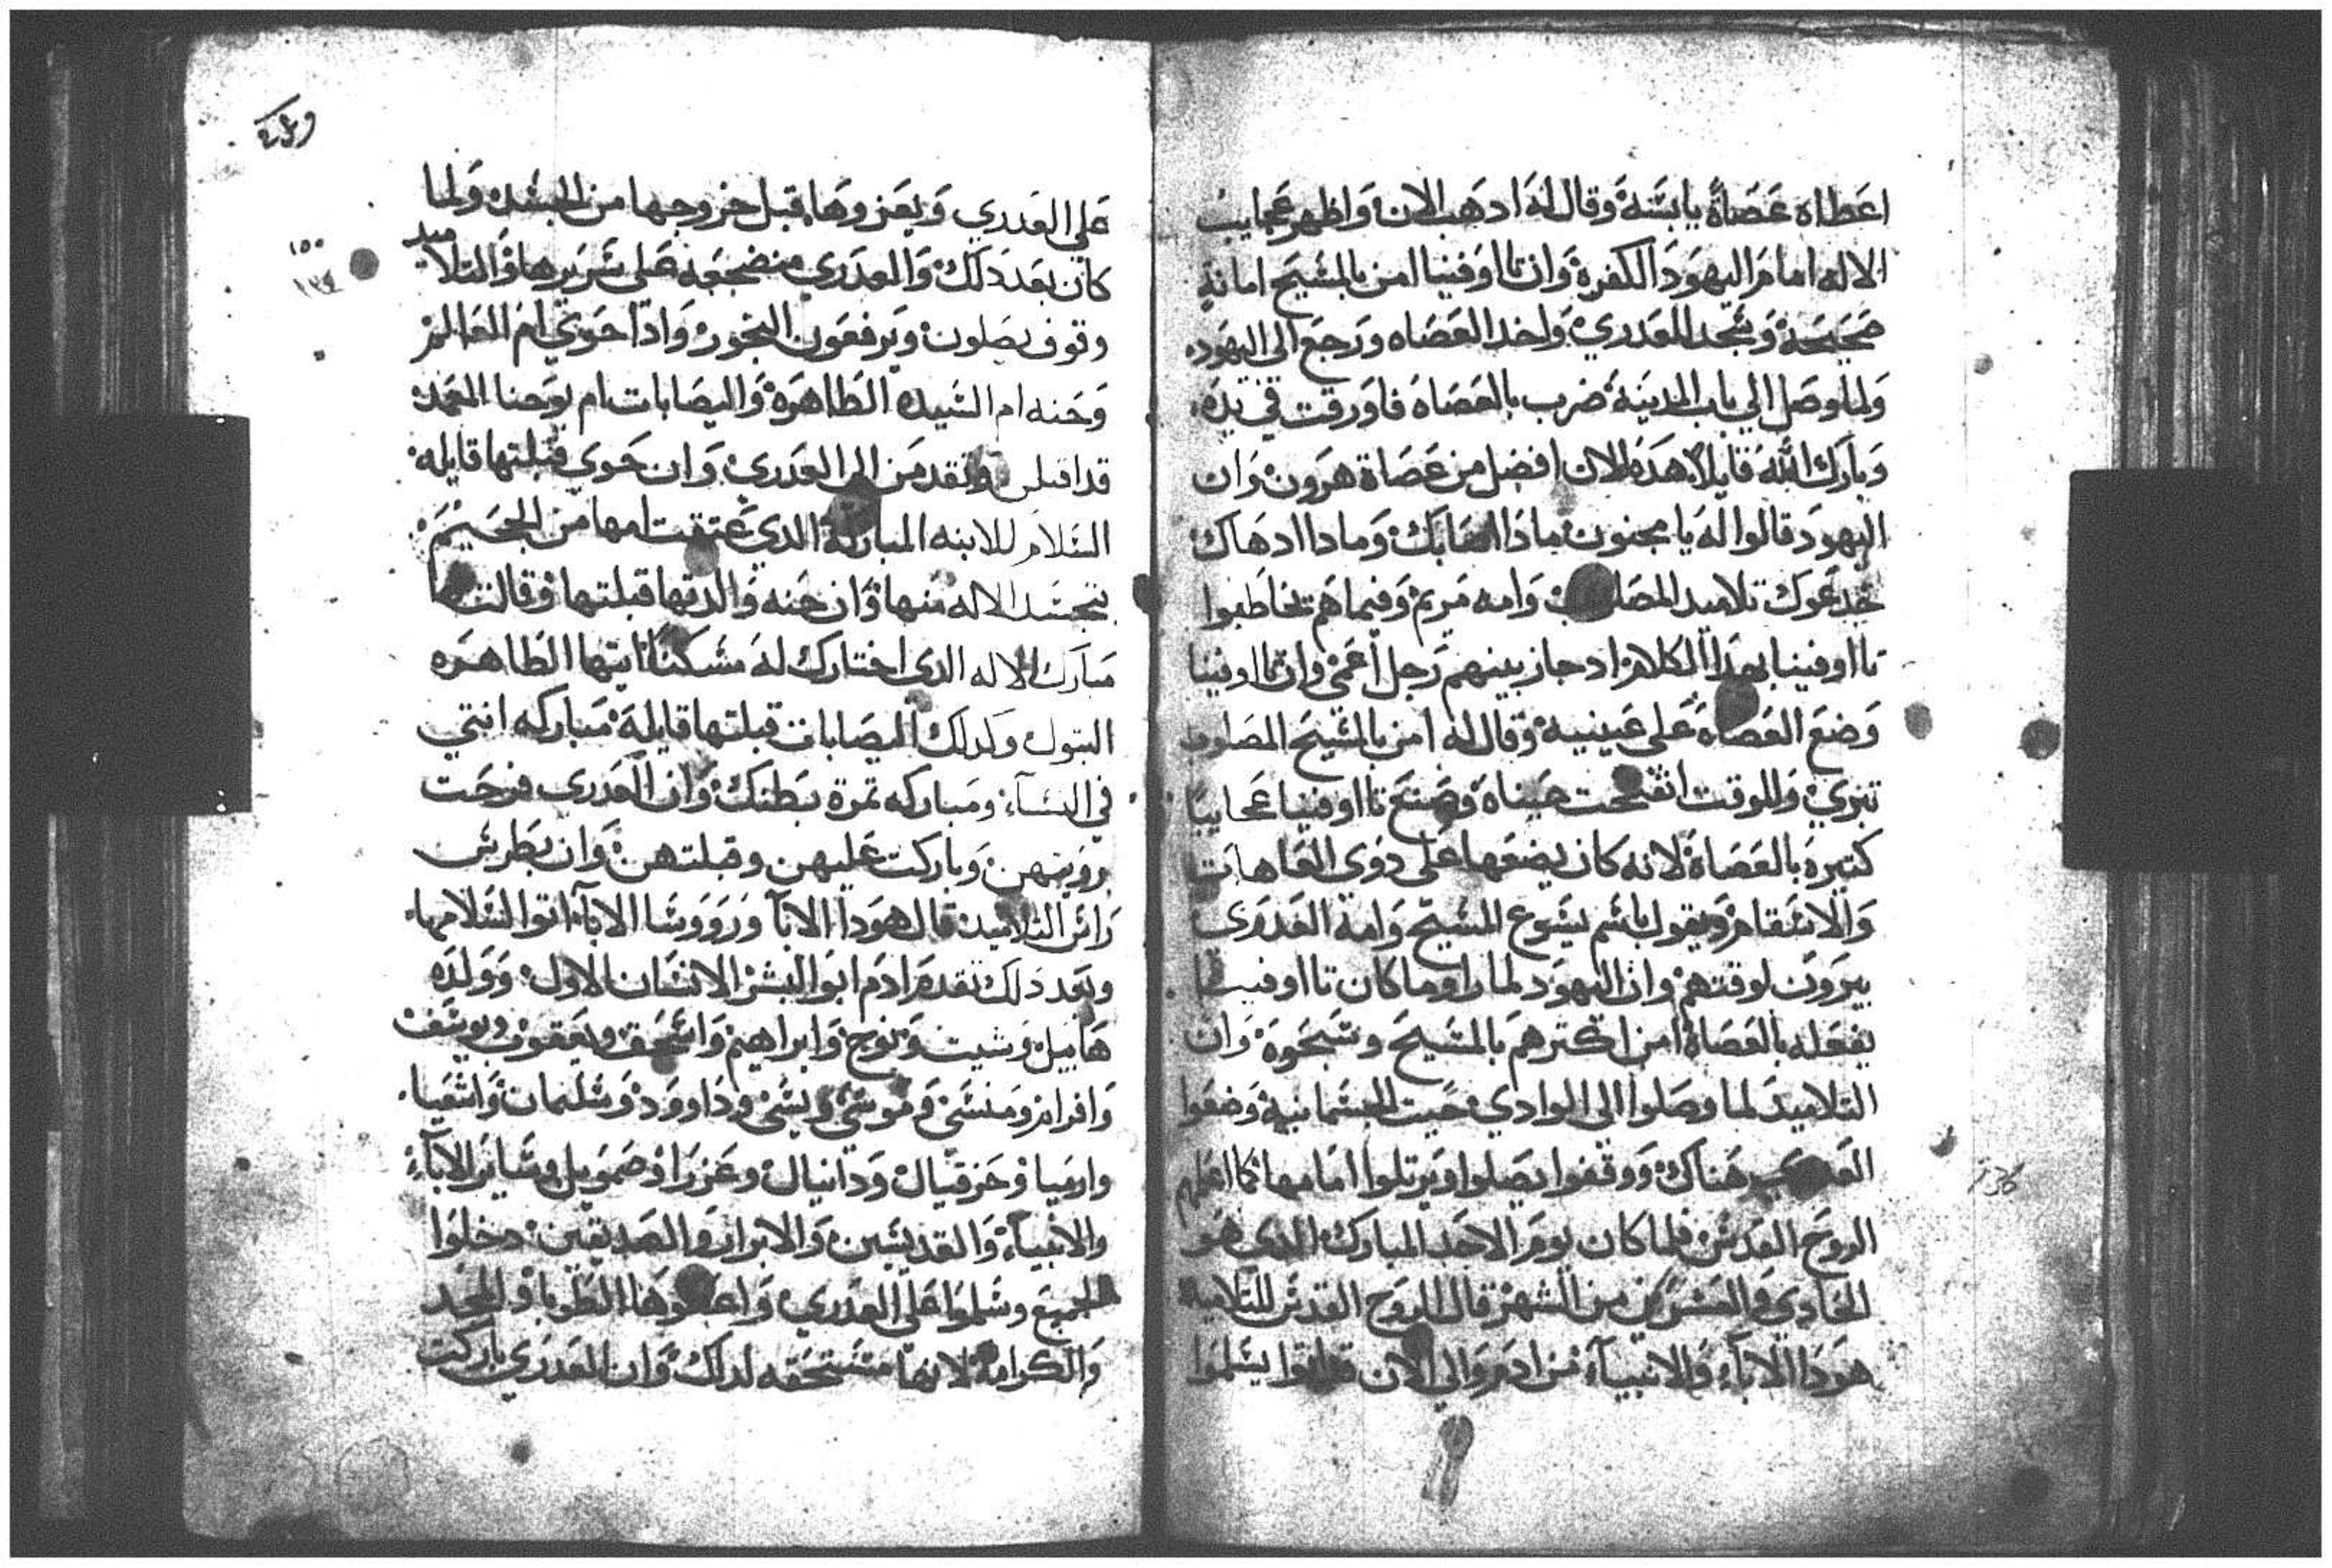 اعطاه عصاة يابسة وقال له ادهب الان واظهر عجايب
الاله امام اليهود الكفرة وان تااوفنيا امن بالمسيح امانة
صحيحة وسجد للعدري واخد العصاه ورجع الى اليهود
ولما وصل الي باب المدينة ضرب بالعصاه فاورقت في يده
وبارك الله قايلا هده الان افضل من عصاة هرون وان
اليهود قالوا له يا مجنون مادا اصابك ومادا ادهاك
خدعوك تلاميد المصلوب وامه مريم وفيما هم تخاطبوا
تااوفنيا بهدا الكلام اد جاز بينهم رجل اعمى وان تااوفنيا
وضع العصاه على عينيه وقال له امن بالمسيح المصلوب
تبري وللوقت انفتحت عيناه وصنع تااوفنيا عجايبا
كتيره بالعصاة لانه كان يضعها على دوى العاهات
والاسقام ويقول باسم يسوع المسيح وامه العدرى
يبرون لوقتهم وان اليهود لما راوا ما كان تااوفنيا
يفعله بالعصاة امن اكترهم بالمسيح وسبحوه وان
التلاميد لما وصلوا الى الوادي حيت الجسمانية وضعوا
هناك ووقفوا يصلوا ويرتلوا امامها كما اعلمهم
الروح القدس فلما كان يوم الاحد المبارك الدي هو
الحادي والعشرين من الشهر قال الروح القدس للتلاميد
هودا الابآء والانبيآء من ادم والي الان يسلموا
على العدري ويعزوها قبل خروجها من الجسد ولما
كان بعد دلك والعدري منضجعه على سريرها والتلاميد
وقوف يصلون ويرفعون البخور وادا حوي ام العالم
وحنه ام السيده الطاهره واليصابات ام يوحنا المعمد
قد اقبلن وتقدمن الى العدرى وان حوي قبلتها قايله
السلام للابنه المباركة الدي عتقت امها من الجحيم
بتجسد الاله منها وان حنه والدتها قبلتها وقالت لها
مبارك الاله الدى اختارك له مسكنا ايتها الطاهره
البتول وكدلك اليصابات قبلتها قايلة مباركه انتي
في النسآء ومباركه تمرة بطنك وان العدرى فرحت
برويتهن وباركت عليهن وقبلتهن وان بطرس
راس التلاميد قال هودا الابآ وروسا الابآء اتوا للسلام بها
وبعد دلك تقدم ادم ابو البشر الانسان الاول وولده
هابيل وشيت ونوح وابراهيم واسحق ويعقوب ويوسف
وافرام ومنسى وموسى ويسى وداوود وسليمان واشعيا
وارميا وحزقيال ودانيال وعزرا وصمويل وساير الابآء
والانبيآء والقديسين والابرار والصديقين دخلوا
الجميع وسلموا على العدري واعطوها الطوبا والمجد
والكرامة لانها مستحقه لدلك وان العدري باركت
١٥٥
١٣٤